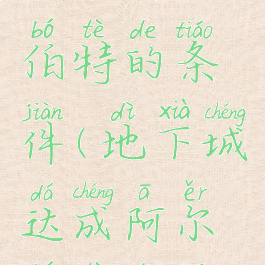 bó tè de tiáo
伯特的条
jiàn dì xià chéng
件(地下城
dá chéng ā ěr
达成阿尔